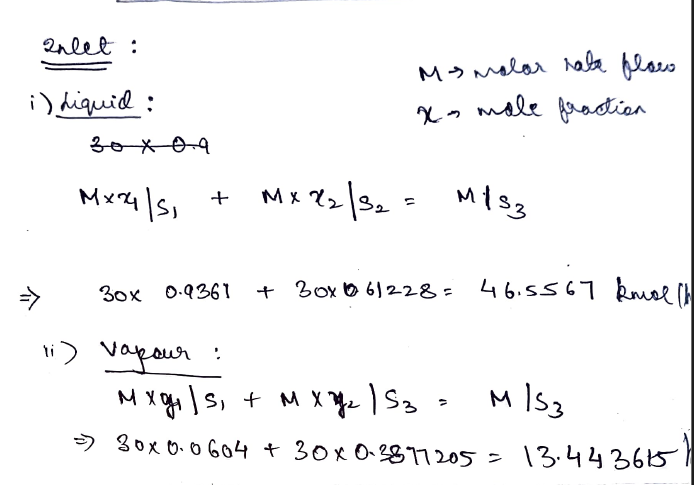 Inlet :
M → molar rate flow
i) Liquid :
x → mole fraction
30 x 0.9
M x x1 | S1 + M x x2 | S2 = M | S3
⇒ 30x 0.9361 + 30x 0.61228 = 46.5567 kmol (h
ii) Vapour :
M x y1 | S1 + M x y2 | S3 = M | S3
⇒ 30x 0.0604 + 30x 0.3877205 = 13.443615